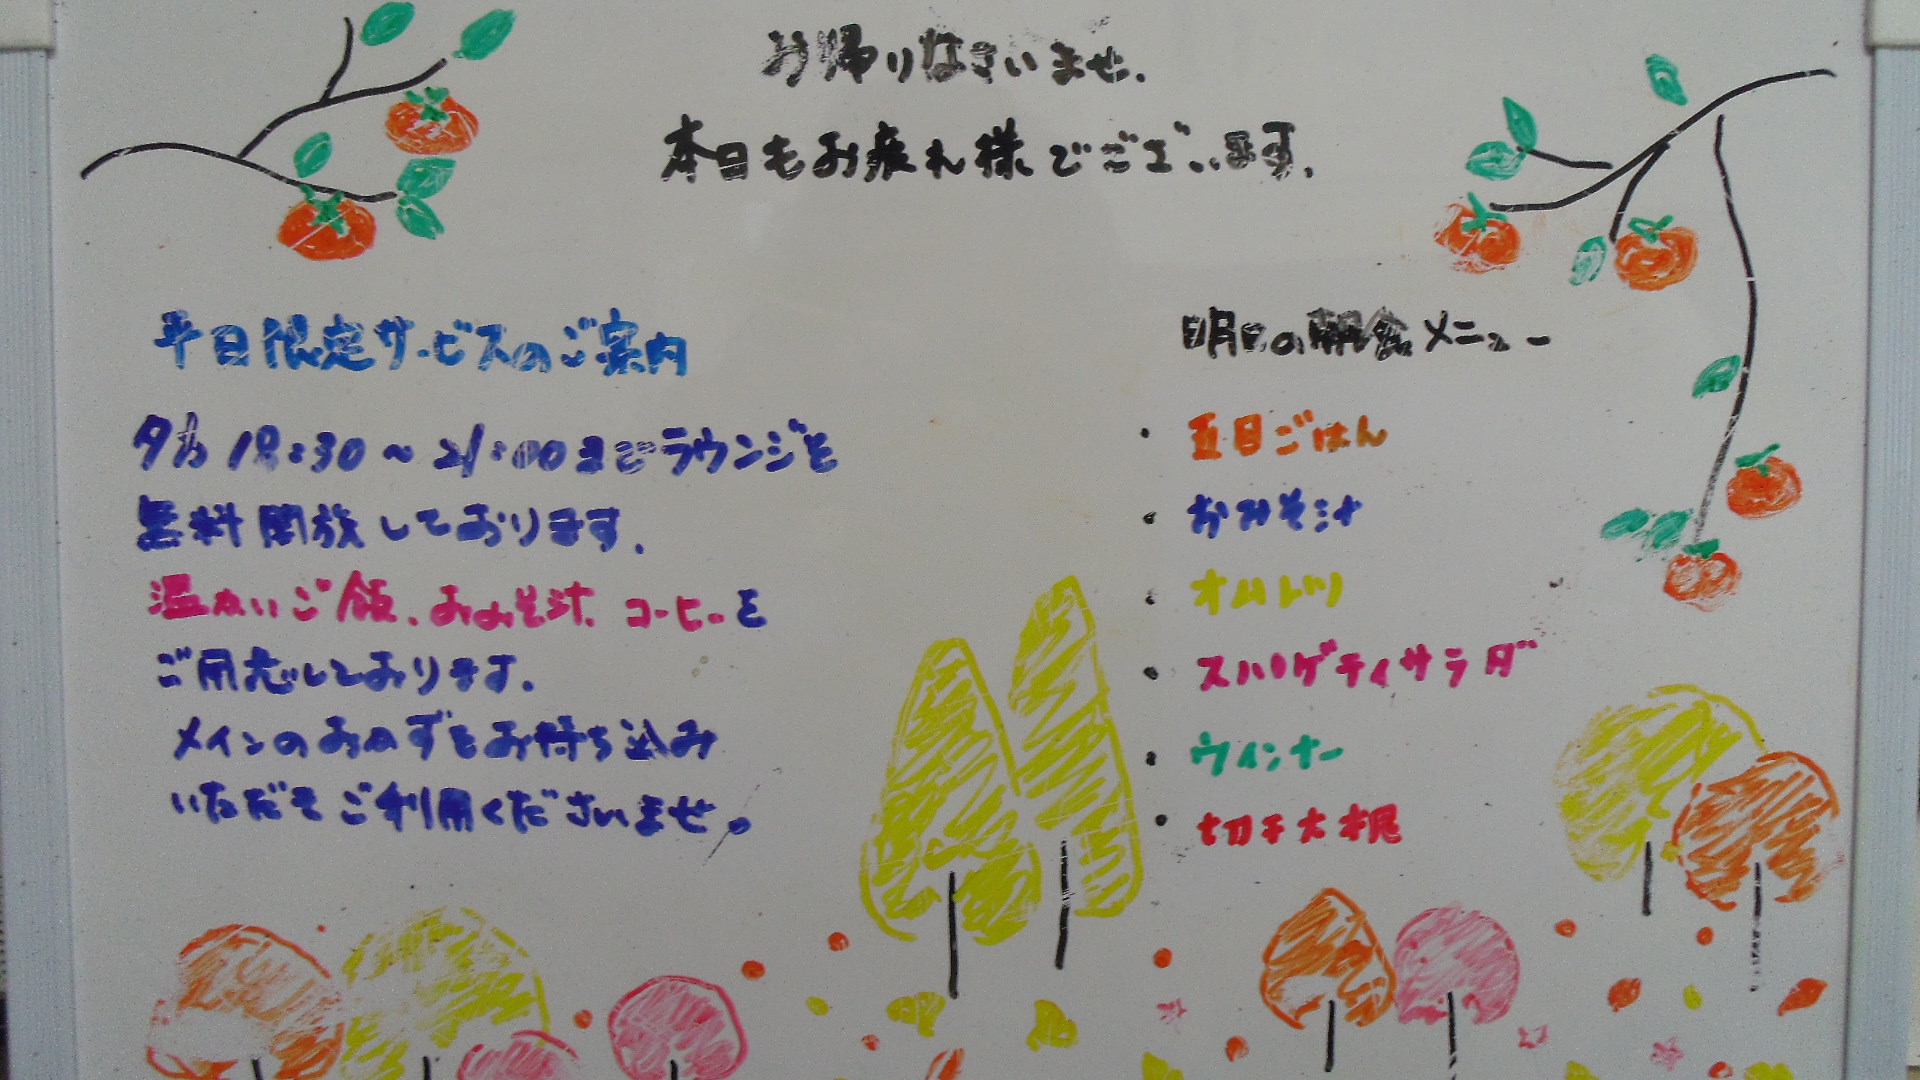 お帰りなさいませ.
本日もお疲れ様でございます.
平日限定サービスのご案内
夕方 18:30～21:00までラウンジを
無料開放しております.
温かいご飯、おみそ汁、コーヒーを
ご用意しております.
メインのおかずをお持ち込み
いただきご利用くださいませ。
明日の朝食メニュー
・五目ごはん
・おみそ汁
・オムレツ
・スパゲティサラダ
・ウィンナー
・切干大根